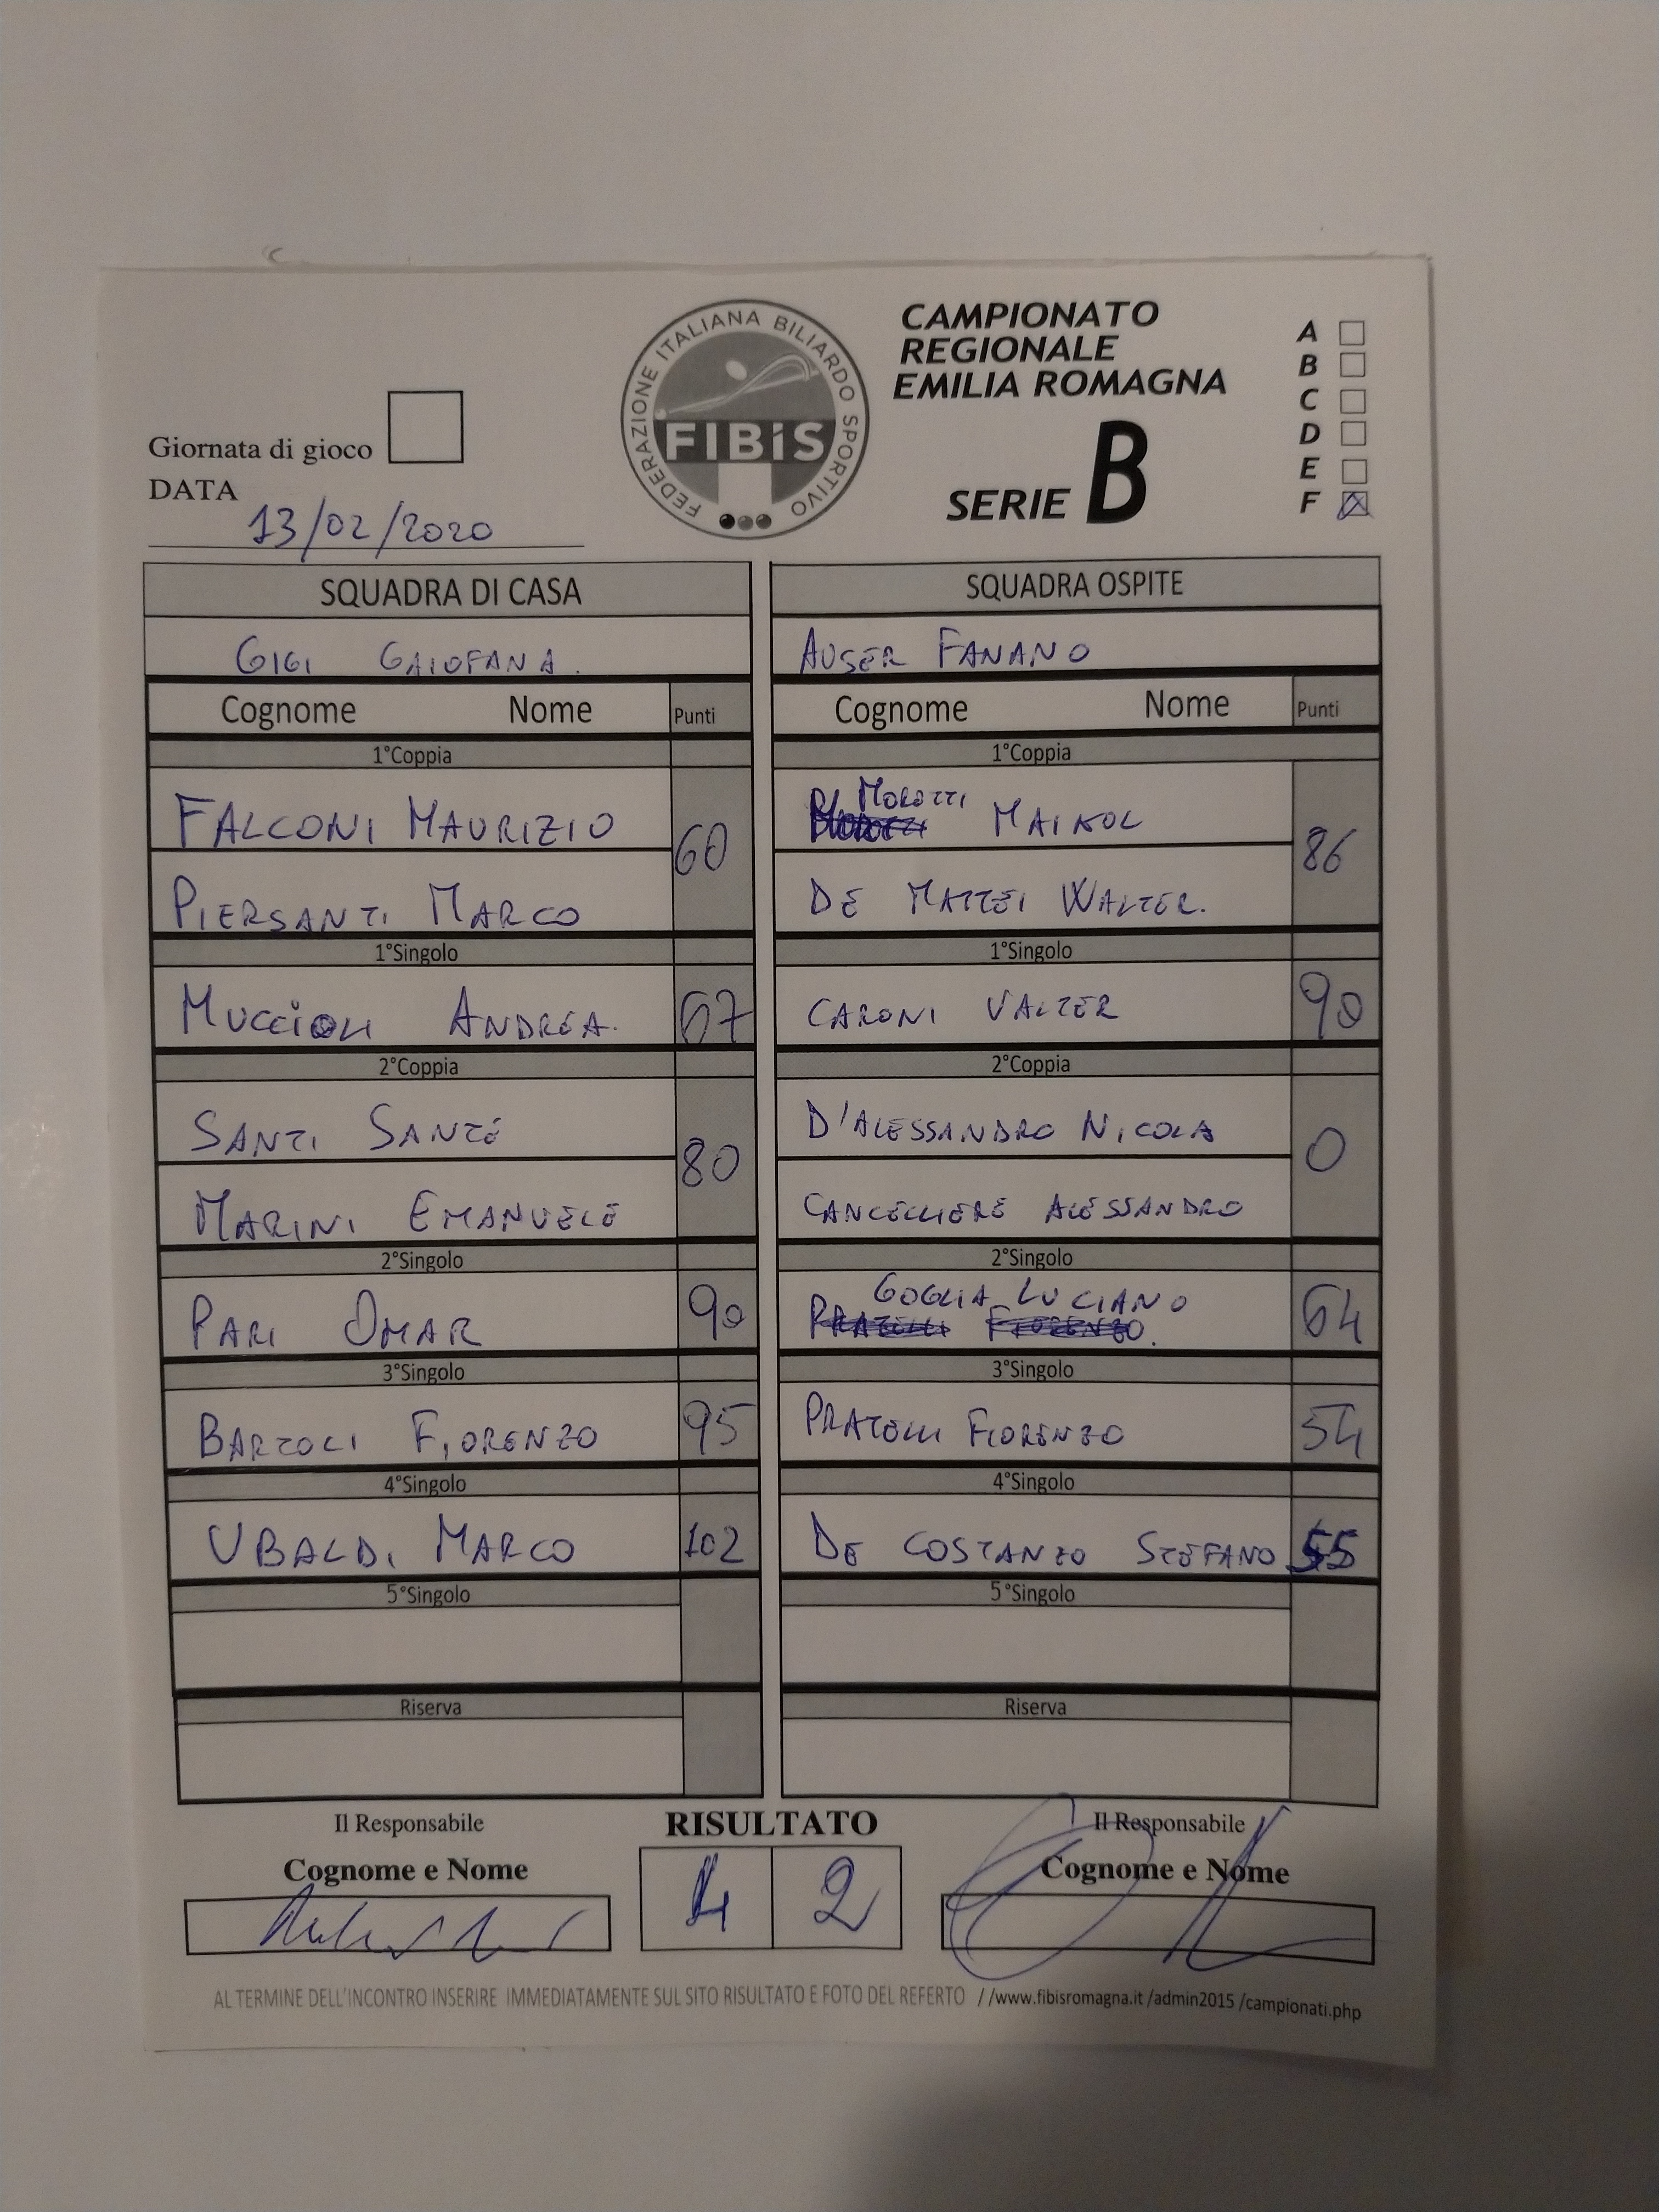 FEDERAZIONE ITALIANA BILIARDO SPORTIVO
FIBiS
CAMPIONATO
REGIONALE
EMILIA ROMAGNA
SERIE B
A
B
C
D
E
F
Giornata di gioco
DATA
13/02/2020
SQUADRA DI CASA
GIGI GAIOFANA.
Cognome Nome Punti
1°Coppia
FALCONI MAURIZIO
60
PIERSANTI MARCO
1°Singolo
MUCCIOLI ANDREA. 67
2°Coppia
SANTI SANTE
80
MARINI EMANUELE
2°Singolo
PARI OMAR 90
3°Singolo
BARTOLI FIORENZO 95
4°Singolo
UBALDI MARCO 102
5°Singolo
Riserva
SQUADRA OSPITE
AUSER FANANO
Cognome Nome Punti
1°Coppia
MOROTTI
MAIKOL
86
DE MATTEI WALTER.
1°Singolo
CARONI VALTER 90
2°Coppia
D'ALESSANDRO NICOLA
0
CANCELLIERE ALESSANDRO
2°Singolo
GOGLIA LUCIANO
PRATELLI FIORENZO.
64
3°Singolo
PRATELLI FIORENZO 54
4°Singolo
DE COSTANZO STEFANO 55
5°Singolo
Riserva
Il Responsabile
Cognome e Nome
RISULTATO
4 2
Il Responsabile
Cognome e Nome
AL TERMINE DELL'INCONTRO INSERIRE IMMEDIATAMENTE SUL SITO RISULTATO E FOTO DEL REFERTO //www.fibisromagna.it /admin2015 /campionati.php